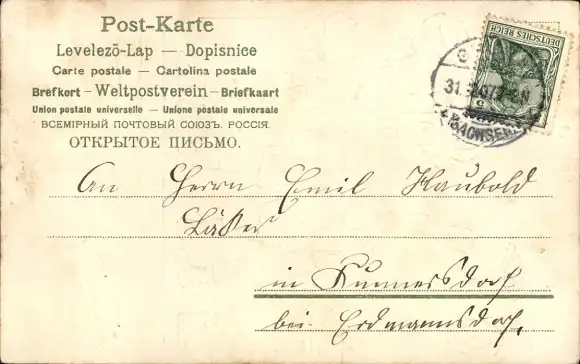 Post-Karte
Levelező-Lap — Dopisnice
Carte postale — Cartolina postale
Brefkort - Weltpostverein - Briefkaart
Union postale universelle — Unione postale universale
ВСЕМІРНЫЙ ПОЧТОВЫЙ СОЮЗЪ. РОССІЯ.
ОТКРЫТОЕ ПИСЬМО.
DEUTSCHES REICH
31. 07
(SACHSEN)
An Herrn Emil Haubold
in Kunnersdorf
bei Erdmannsdorf.